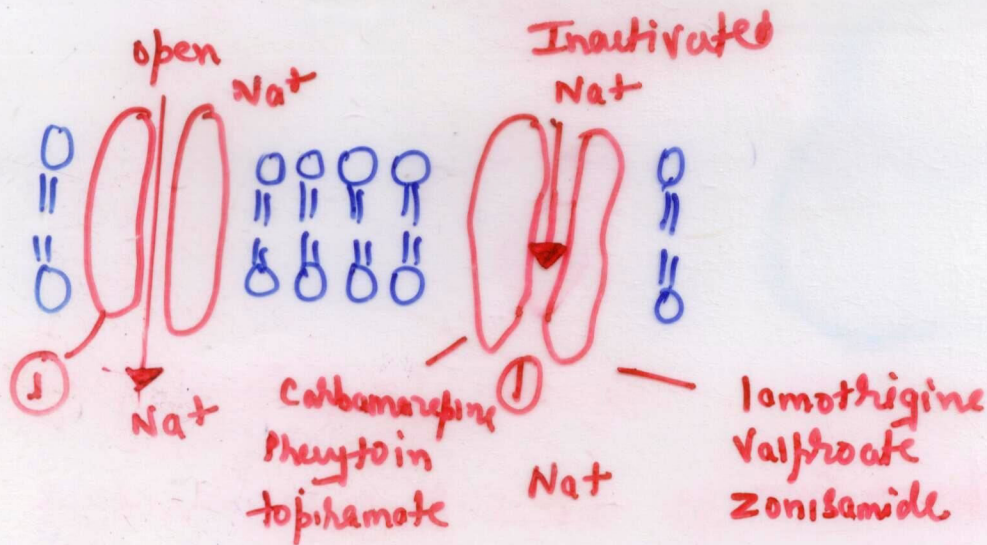 open
Na+
Inactivated
Na+
1
Na+
Carbamazepine
Phenytoin
topiramate
1
Na+
lamotrigine
Valproate
Zonisamide